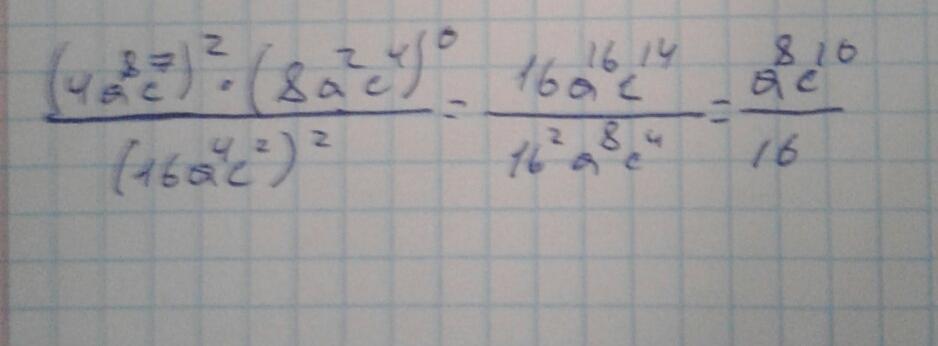 (4a⁸c⁷)² · (8a²c⁴)⁰ / (16a⁴c²)² = 16a¹⁶c¹⁴ / 16²a⁸c⁴ = a⁸c¹⁰ / 16